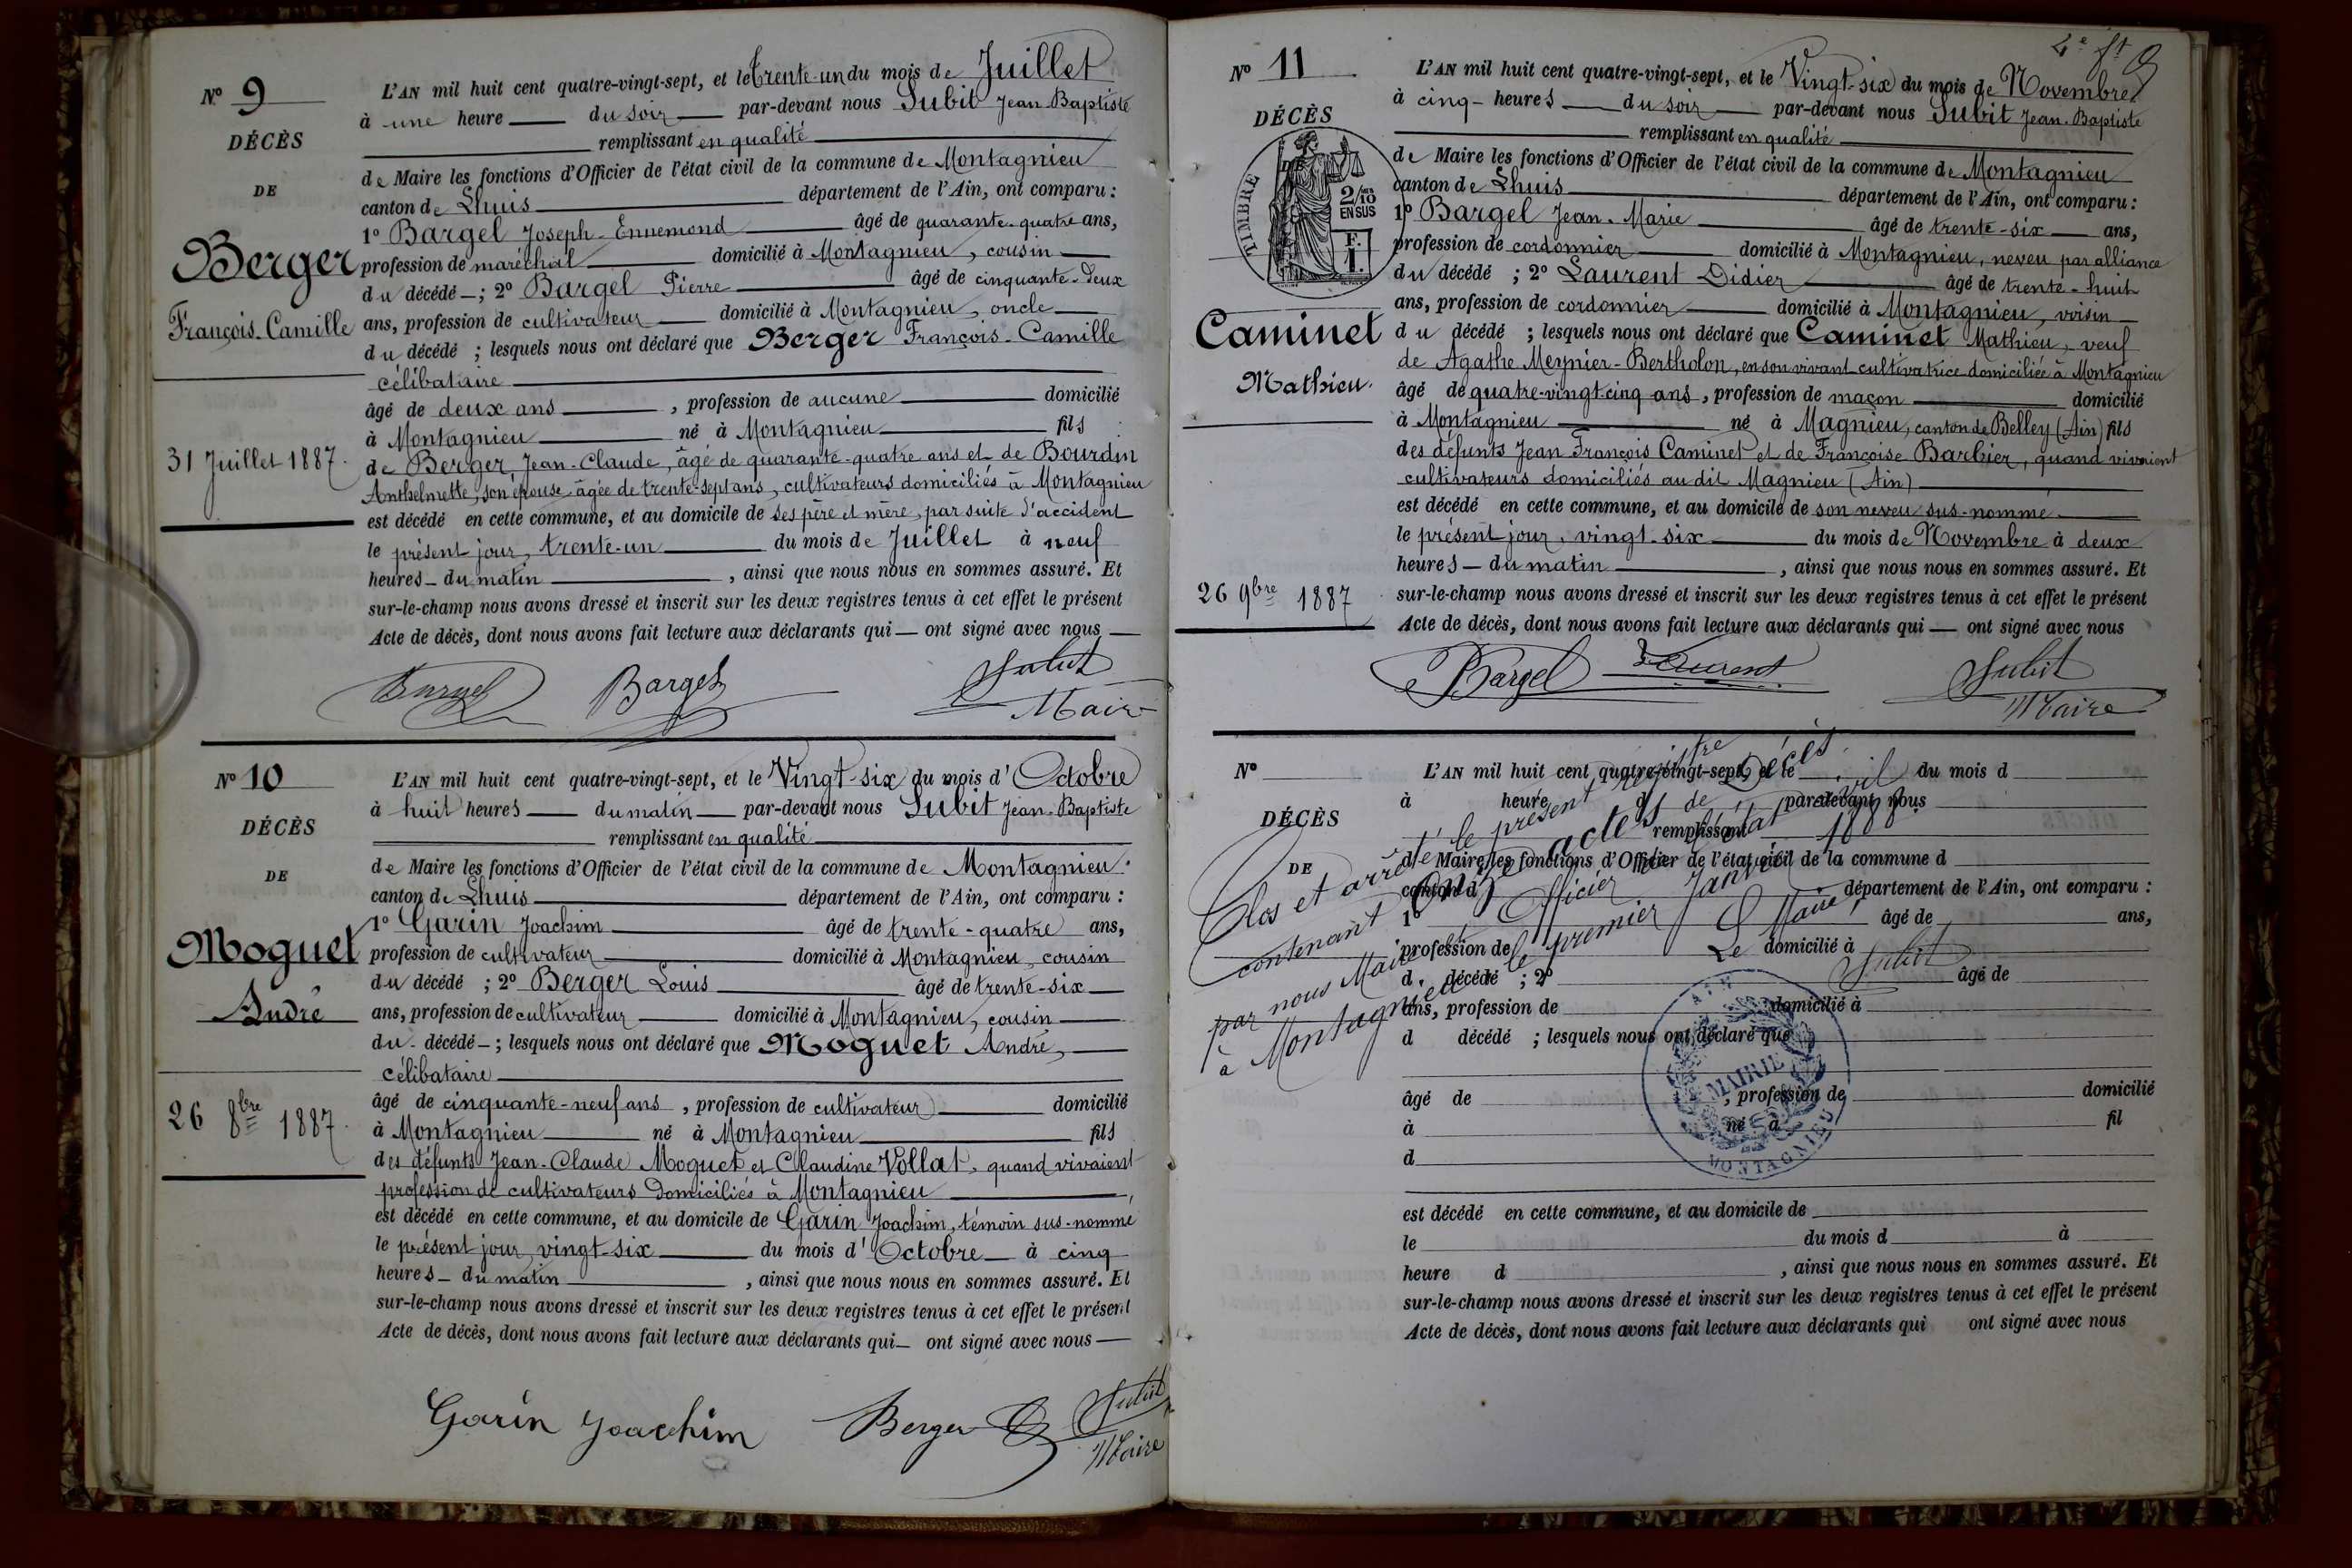 Nº 9
DÉCÈS
DE
Berger
François-Camille
31 Juillet 1887.
L'AN mil huit cent quatre-vingt-sept, et le trente-un du mois de Juillet
à une heure du soir par-devant nous Subit Jean-Baptiste
remplissant en qualité
de Maire les fonctions d'Officier de l'état civil de la commune de Montagnieu
canton de Lhuis département de l'Ain, ont comparu :
1º Bargel Joseph-Ennemond âgé de quarante-quatre ans,
profession de maréchal domicilié à Montagnieu, cousin
du décédé ; 2º Bargel Pierre âgé de cinquante-deux
ans, profession de cultivateur domicilié à Montagnieu, oncle
du décédé ; lesquels nous ont déclaré que Berger François-Camille
célibataire
âgé de deux ans, profession de aucune domicilié
à Montagnieu né à Montagnieu fils
de Berger Jean-Claude, âgé de quarante-quatre ans et de Bourdin
Anthelmette, son épouse âgée de trente-sept ans, cultivateurs domiciliés à Montagnieu
est décédé en cette commune, et au domicile de ses père et mère, par suite d'accident
le présent jour, trente-un du mois de Juillet à neuf
heures du matin, ainsi que nous nous en sommes assuré. Et
sur-le-champ nous avons dressé et inscrit sur les deux registres tenus à cet effet le présent
Acte de décès, dont nous avons fait lecture aux déclarants qui ont signé avec nous
Bargel Bargel Subit
Maire
Nº 10
DÉCÈS
DE
Moguet
André
26 8bre 1887.
L'AN mil huit cent quatre-vingt-sept, et le Vingt-six du mois d'Octobre
à huit heures du matin par-devant nous Subit Jean-Baptiste
remplissant en qualité
de Maire les fonctions d'Officier de l'état civil de la commune de Montagnieu
canton de Lhuis département de l'Ain, ont comparu :
1º Garin Joachim âgé de trente-quatre ans,
profession de cultivateur domicilié à Montagnieu, cousin
du décédé ; 2º Berger Louis âgé de trente-six
ans, profession de cultivateur domicilié à Montagnieu, cousin
du décédé ; lesquels nous ont déclaré que Moguet André,
célibataire
âgé de cinquante-neuf ans, profession de cultivateur domicilié
à Montagnieu né à Montagnieu fils
des défunts Jean-Claude Moguet et Claudine Vollat, quand vivaient
profession de cultivateurs domiciliés à Montagnieu
est décédé en cette commune, et au domicile de Garin Joachim, témoin sus-nommé
le présent jour, vingt-six du mois d'Octobre à cinq
heures du matin, ainsi que nous nous en sommes assuré. Et
sur-le-champ nous avons dressé et inscrit sur les deux registres tenus à cet effet le présent
Acte de décès, dont nous avons fait lecture aux déclarants qui ont signé avec nous
Garin Joachim Berger Subit
Maire
Nº 11
DÉCÈS
TIMBRE
2/10
EN SUS
F.
1.
Caminet
Mathieu.
26 9bre 1887
L'AN mil huit cent quatre-vingt-sept, et le Vingt-six du mois de Novembre
à cinq heures du soir par-devant nous Subit Jean-Baptiste
remplissant en qualité
de Maire les fonctions d'Officier de l'état civil de la commune de Montagnieu
canton de Lhuis département de l'Ain, ont comparu :
1º Bargel Jean-Marie âgé de trente-six ans,
profession de cordonnier domicilié à Montagnieu, neveu par alliance
du décédé ; 2º Laurent Didier âgé de trente-huit
ans, profession de cordonnier domicilié à Montagnieu, voisin
du décédé ; lesquels nous ont déclaré que Caminet Mathieu, veuf
de Agathe Meynier-Bertholon, en son vivant cultivatrice domiciliée à Montagnieu
âgé de quatre-vingt-cinq ans, profession de maçon domicilié
à Montagnieu né à Magnieu, canton de Belley (Ain) fils
des défunts Jean François Caminet et de Françoise Barbier, quand vivaient
cultivateurs domiciliés au dit Magnieu (Ain)
est décédé en cette commune, et au domicile de son neveu sus-nommé
le présent jour, vingt-six du mois de Novembre à deux
heures du matin, ainsi que nous nous en sommes assuré. Et
sur-le-champ nous avons dressé et inscrit sur les deux registres tenus à cet effet le présent
Acte de décès, dont nous avons fait lecture aux déclarants qui ont signé avec nous
Bargel Laurent Subit
Maire
Nº
DÉCÈS
DE
L'AN mil huit cent quatre-vingt-sept, et le du mois d
à heure d par-devant nous
remplissant
de Maire les fonctions d'Officier de l'état civil de la commune d
canton d département de l'Ain, ont comparu :
1º âgé de ans,
profession de domicilié à
d décédé ; 2º âgé de
ans, profession de domicilié à
d décédé ; lesquels nous ont déclaré que
âgé de , profession de domicilié
à né à fil
d
est décédé en cette commune, et au domicile de
le du mois d à
heure d , ainsi que nous nous en sommes assuré. Et
sur-le-champ nous avons dressé et inscrit sur les deux registres tenus à cet effet le présent
Acte de décès, dont nous avons fait lecture aux déclarants qui ont signé avec nous
Clos et arrêté le présent registre
contenant onze actes de Décès
par nous Maire Officier de l'état civil
à Montagnieu le premier Janvier 1888
Le Maire,
Subit
AIN
MAIRIE
MONTAGNIEU